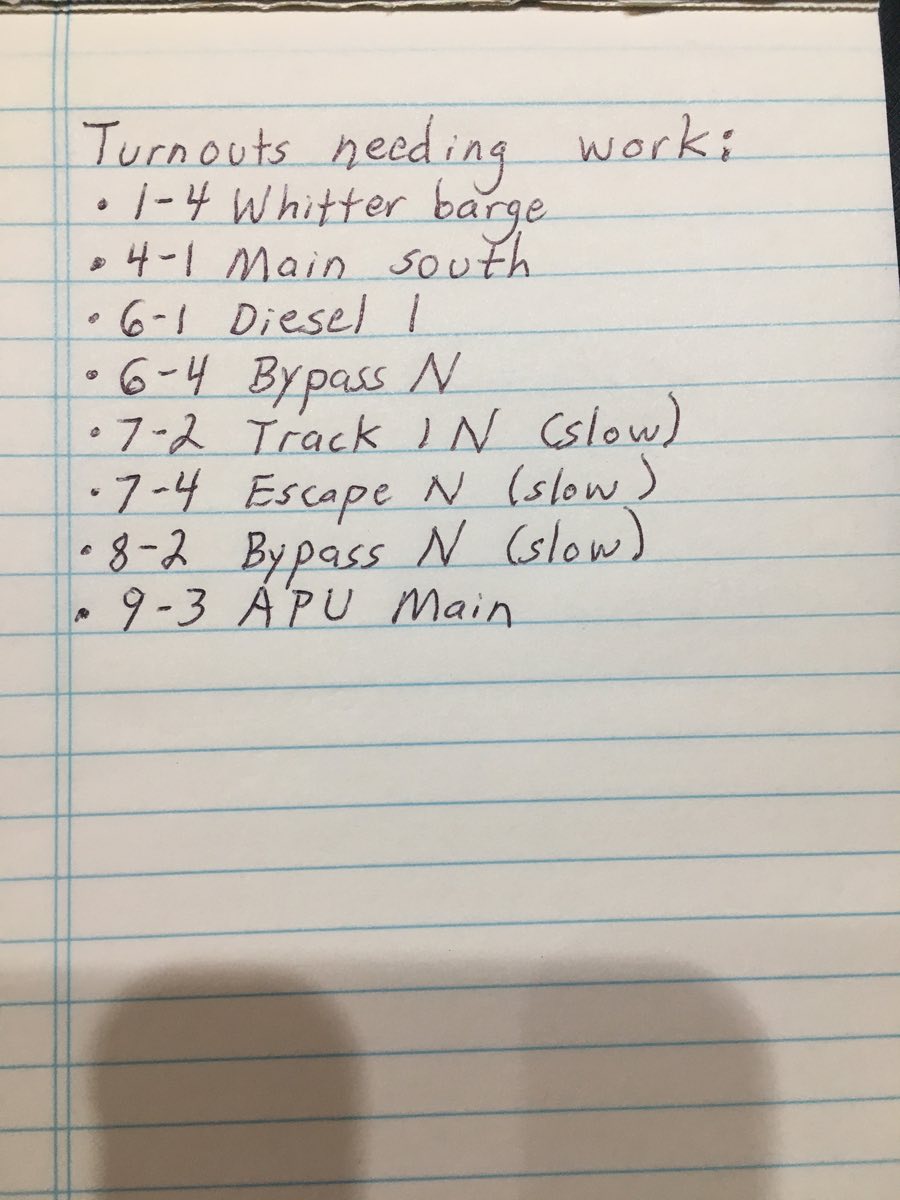 Turnouts needing work:
• 1-4 Whitter barge
• 4-1 Main south
• 6-1 Diesel 1
• 6-4 Bypass N
• 7-2 Track 1 N (slow)
• 7-4 Escape N (slow)
• 8-2 Bypass N (slow)
• 9-3 APU Main